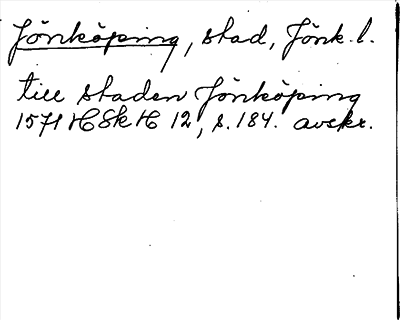 Jönköping, stad, Jönk. l.
till staden Jönköping
1571 HSkH 12, s. 184. avskr.